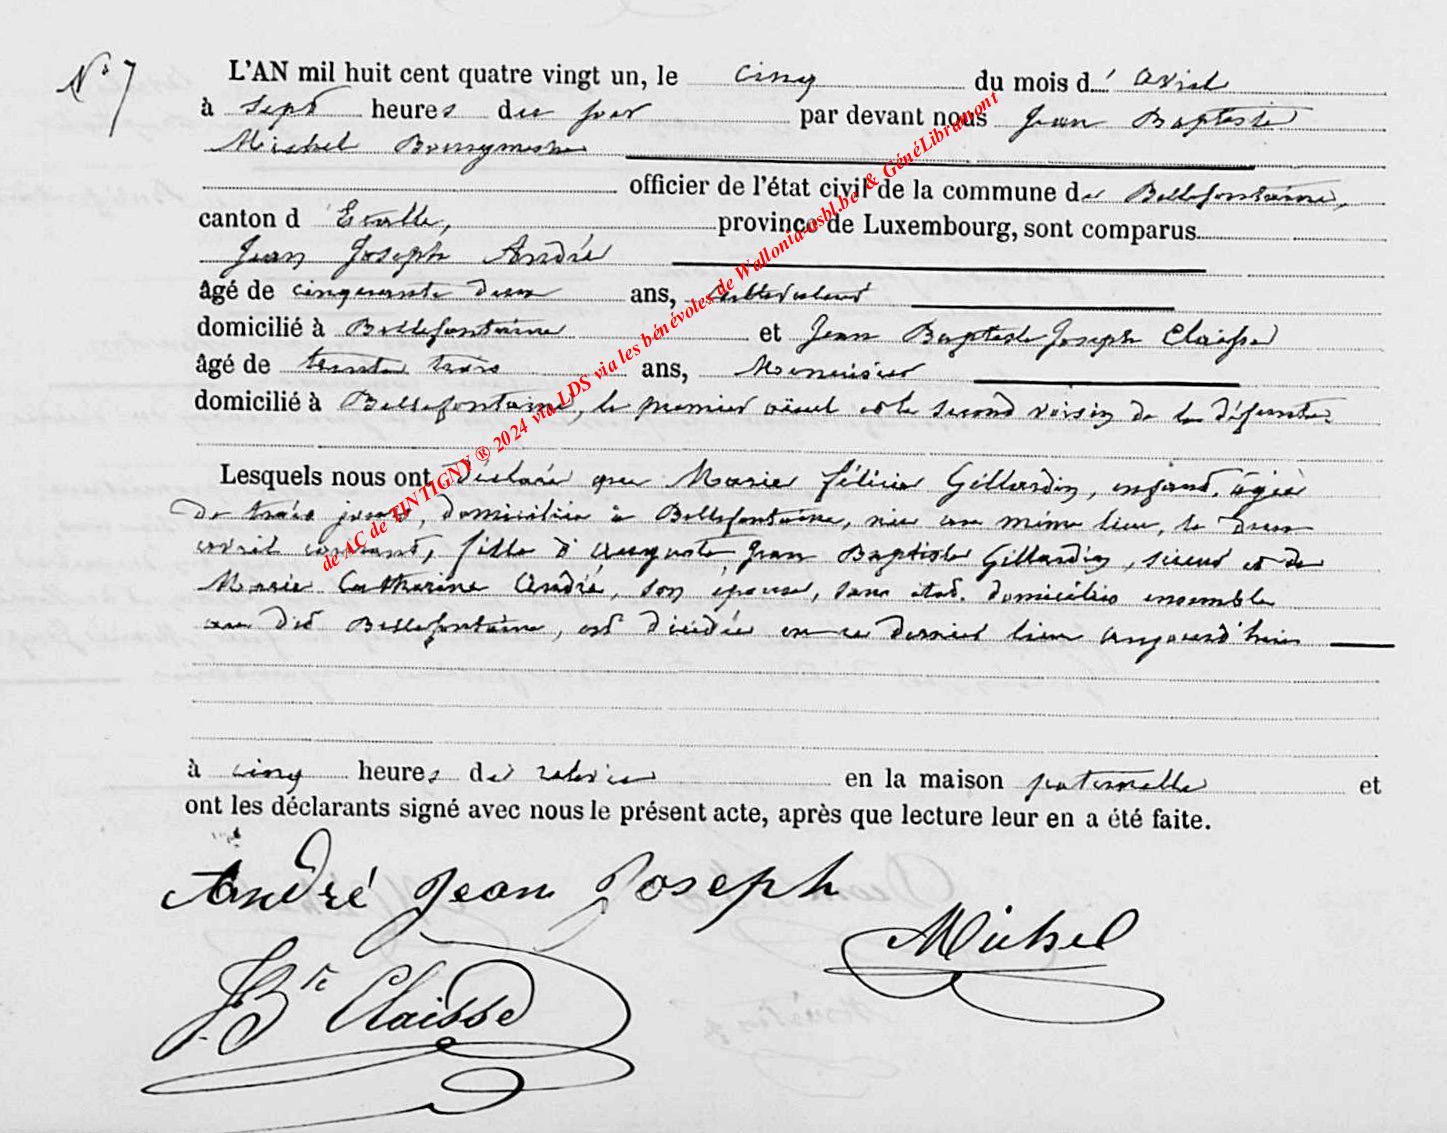 N° 7
L'AN mil huit cent quatre vingt un, le cinq du mois d' avril
à sept heures du soir par devant nous Jean Baptiste
Michel Bourgmestre
officier de l'état civil de la commune de Bellefontaine,
canton d' Etalle, province de Luxembourg, sont comparus
Jean Joseph André
âgé de cinquante deux ans, cultivateur
domicilié à Bellefontaine et Jean Baptiste Joseph Claisse
âgé de trente trois ans, Menuisier
domicilié à Bellefontaine, le premier aïeul et le second voisin de la défunte
Lesquels nous ont déclaré que Marie Félicie Gillardin, enfant, âgée
de trois jours, domiciliée à Bellefontaine, née au même lieu, le deux
avril courant, fille d'Auguste Jean Baptiste Gillardin, scieur et de
Marie Catherine André, son épouse, sans état, domiciliés ensemble
au dit Bellefontaine, est décédée en ce dernier lieu aujourd'hui
à cinq heures de relevée en la maison paternelle et
ont les déclarants signé avec nous le présent acte, après que lecture leur en a été faite.
André Jean Joseph
Michel
J. Bte Claisse
de AC de TINTIGNY ® 2024 via LDS via les bénévoles de Wallonia-asbl.be & GénéLibramont